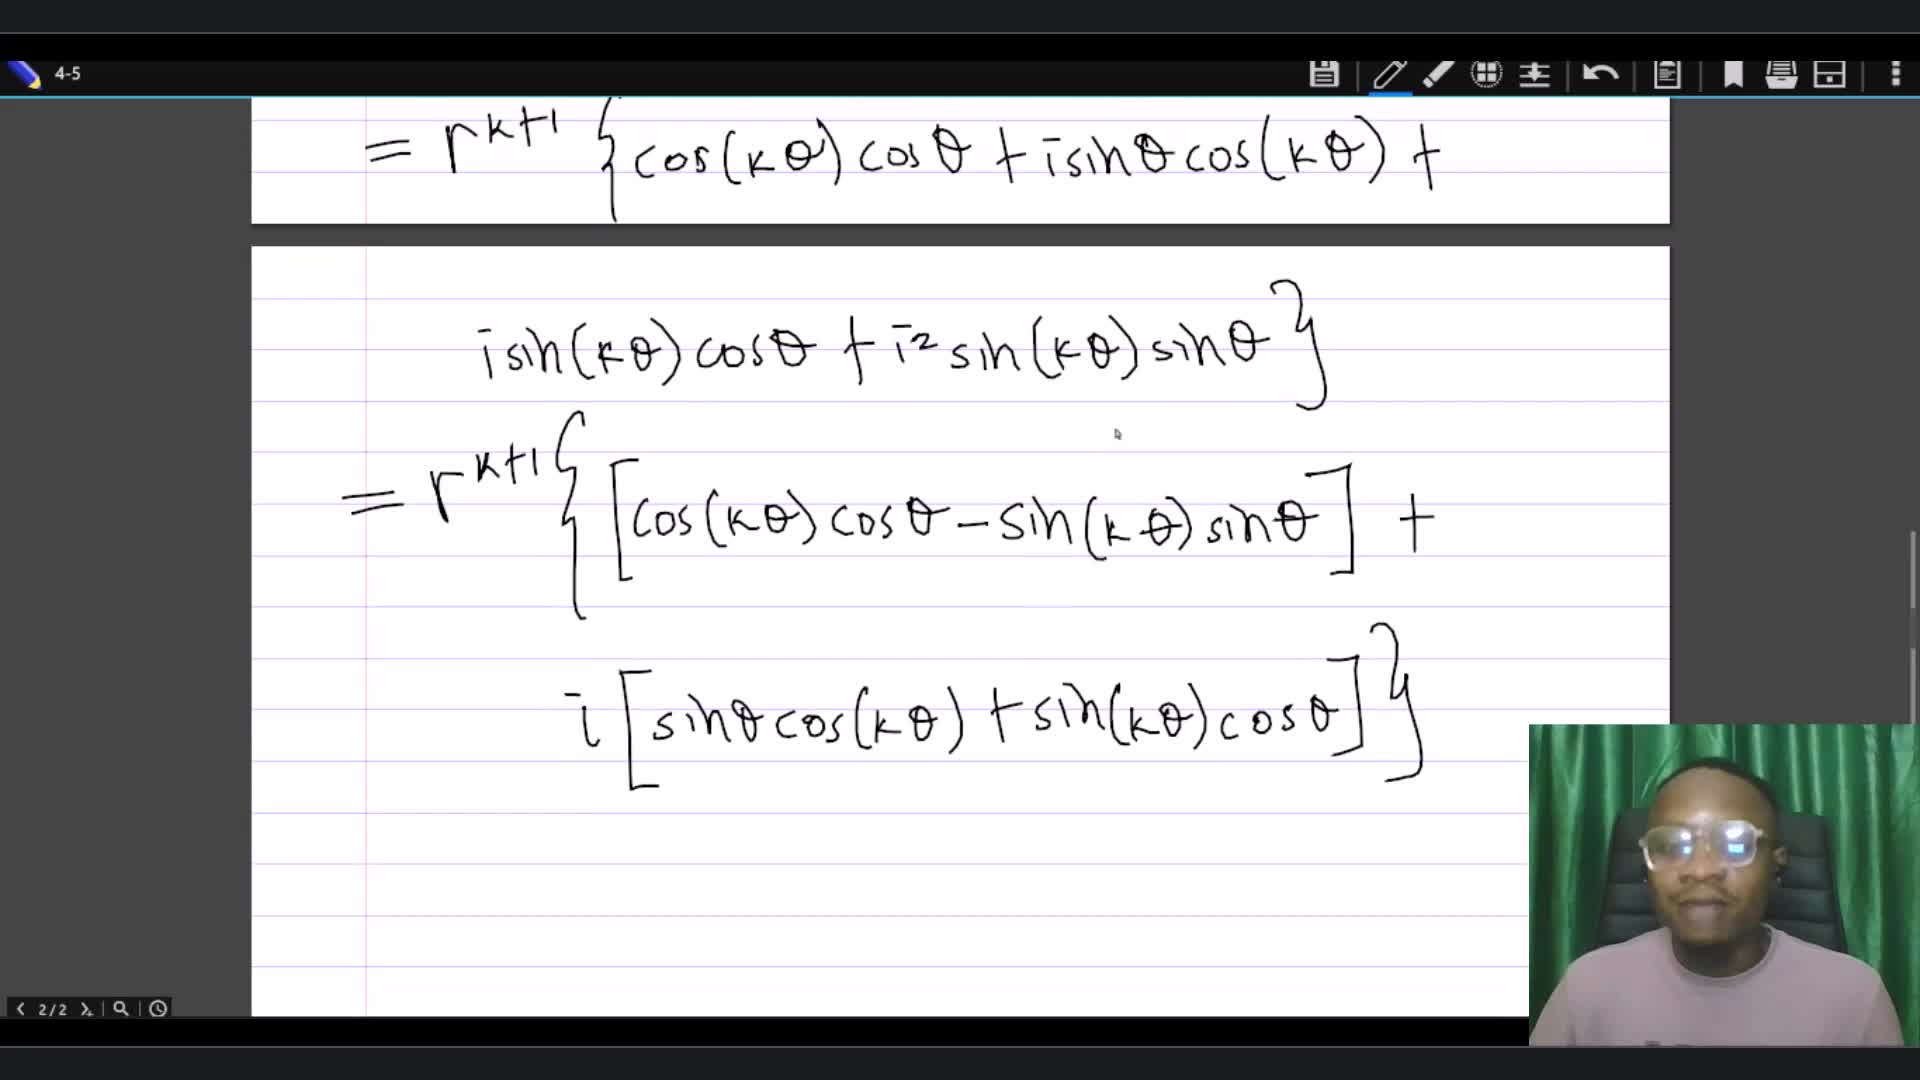 4-5
= r^{k+1} { cos(kθ) cosθ + i sinθ cos(kθ) +
i sin(kθ) cosθ + i² sin(kθ) sinθ }
= r^{k+1} { [cos(kθ) cosθ - sin(kθ) sinθ] +
i [sinθ cos(kθ) + sin(kθ) cosθ] }
2/2